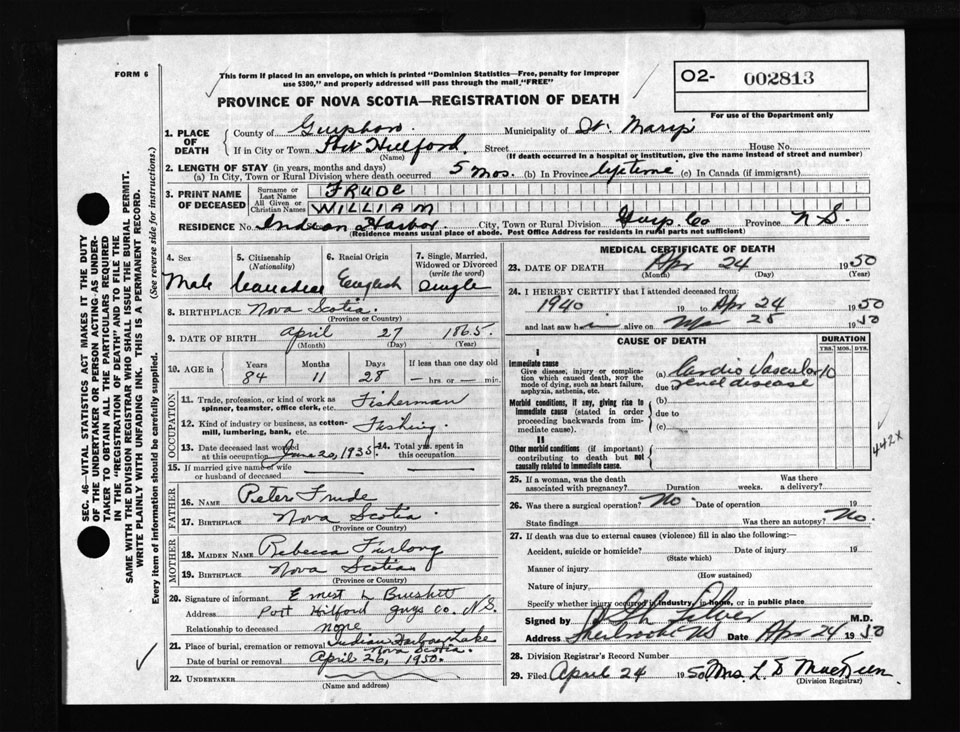 FORM 6
This form if placed in an envelope, on which is printed "Dominion Statistics—Free, penalty for improper
use $300," and properly addressed will pass through the mail "FREE"
O2- 002813
For use of the Department only
PROVINCE OF NOVA SCOTIA—REGISTRATION OF DEATH
SEC. 46—VITAL STATISTICS ACT MAKES IT THE DUTY
OF THE UNDERTAKER OR PERSON ACTING AS UNDER-
TAKER TO OBTAIN ALL THE PARTICULARS REQUIRED
IN THE "REGISTRATION OF DEATH" AND TO FILE THE
SAME WITH THE DIVISION REGISTRAR WHO SHALL ISSUE THE BURIAL PERMIT.
WRITE PLAINLY WITH UNFADING INK. THIS IS A PERMANENT RECORD.
Every item of Information should be carefully supplied. (See reverse side for instructions.)
1. PLACE OF DEATH
County of Municipality of St. Mary's
If in City or Town Port Hilford Street House No.
(Name) (If death occurred in a hospital or institution, give the name instead of street and number)
2. LENGTH OF STAY (in years, months and days)
(a) In City, Town or Rural Division where death occurred 5 Mos. (b) In Province lifetime (c) In Canada (if immigrant)
3. PRINT NAME OF DECEASED
Surname or Last Name FRUDE
All Given or Christian Names WILLIAM
RESIDENCE No. Indian Harbor City, Town or Rural Division Guys. Co Province N S.
(Residence means usual place of abode. Post Office Address for residents in rural parts not sufficient)
4. Sex Male
5. Citizenship (Nationality) Canadian
6. Racial Origin English
7. Single, Married, Widowed or Divorced (write the word) Single
8. BIRTHPLACE Nova Scotia.
(Province or Country)
9. DATE OF BIRTH April 27 1865.
(Month) (Day) (Year)
10. AGE in Years 84 Months 11 Days 28 If less than one day old — hrs. or — min.
OCCUPATION
11. Trade, profession, or kind of work as spinner, teamster, office clerk, etc. Fisherman
12. Kind of industry or business, as cotton-mill, lumbering, bank, etc. Fishing
13. Date deceased last worked at this occupation June 20, 1935
14. Total yrs. spent in this occupation
15. If married give name of wife or husband of deceased
FATHER
16. NAME Peter Frude
17. BIRTHPLACE Nova Scotia
(Province or Country)
MOTHER
18. MAIDEN NAME Rebecca Furlong
19. BIRTHPLACE Nova Scotia
(Province or Country)
20. Signature of informant Ernest L
Address Port Hilford Guys Co. N.S.
Relationship to deceased none
21. Place of burial, cremation or removal Indian Harbour Lake Nova Scotia.
Date of burial or removal April 26, 1950.
22. UNDERTAKER
(Name and address)
MEDICAL CERTIFICATE OF DEATH
23. DATE OF DEATH Apr 24 1950
(Month) (Day) (Year)
24. I HEREBY CERTIFY that I attended deceased from:
1940 19 to Apr 24 1950
and last saw him alive on 28 1950
CAUSE OF DEATH
DURATION
YRS. MOS. DYS.
I
Immediate cause
Give disease, injury or complication which caused death, not the mode of dying, such as heart failure, asphyxia, asthenia, etc.
(a) Cardio Vascular 10
due to renal disease
Morbid conditions, if any, giving rise to immediate cause (stated in order proceeding backwards from immediate cause).
(b)
due to
(c)
II
Other morbid conditions (if important) contributing to death but not causally related to immediate cause.
442X
25. If a woman, was the death associated with pregnancy? Duration weeks. Was there a delivery?
26. Was there a surgical operation? No Date of operation 19
State findings Was there an autopsy? No.
27. If death was due to external causes (violence) fill in also the following:—
Accident, suicide or homicide? Date of injury 19
(State which)
Manner of injury
(How sustained)
Nature of injury
Specify whether injury occurred in industry, in home, or in public place
Signed by M.D.
Address Sherbrooke NS Date Apr 24 1950
28. Division Registrar's Record Number
29. Filed April 24 1950 Mrs. L. D
(Division Registrar)